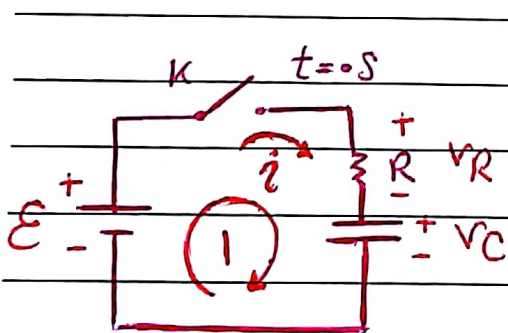 K t=0S
+
i R VR
-
+
ε
-
1
+ VC
-